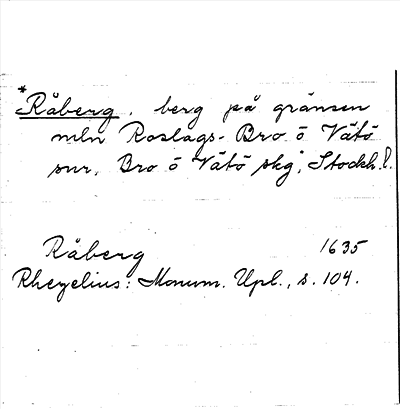 *Råberg. berg på gränsen
mln Roslags-Bro o Vätö
snr, Bro o Vätö skg, Stockh. l.
Råberg 1635
Rhezelius: Monum. Upl., s. 104.